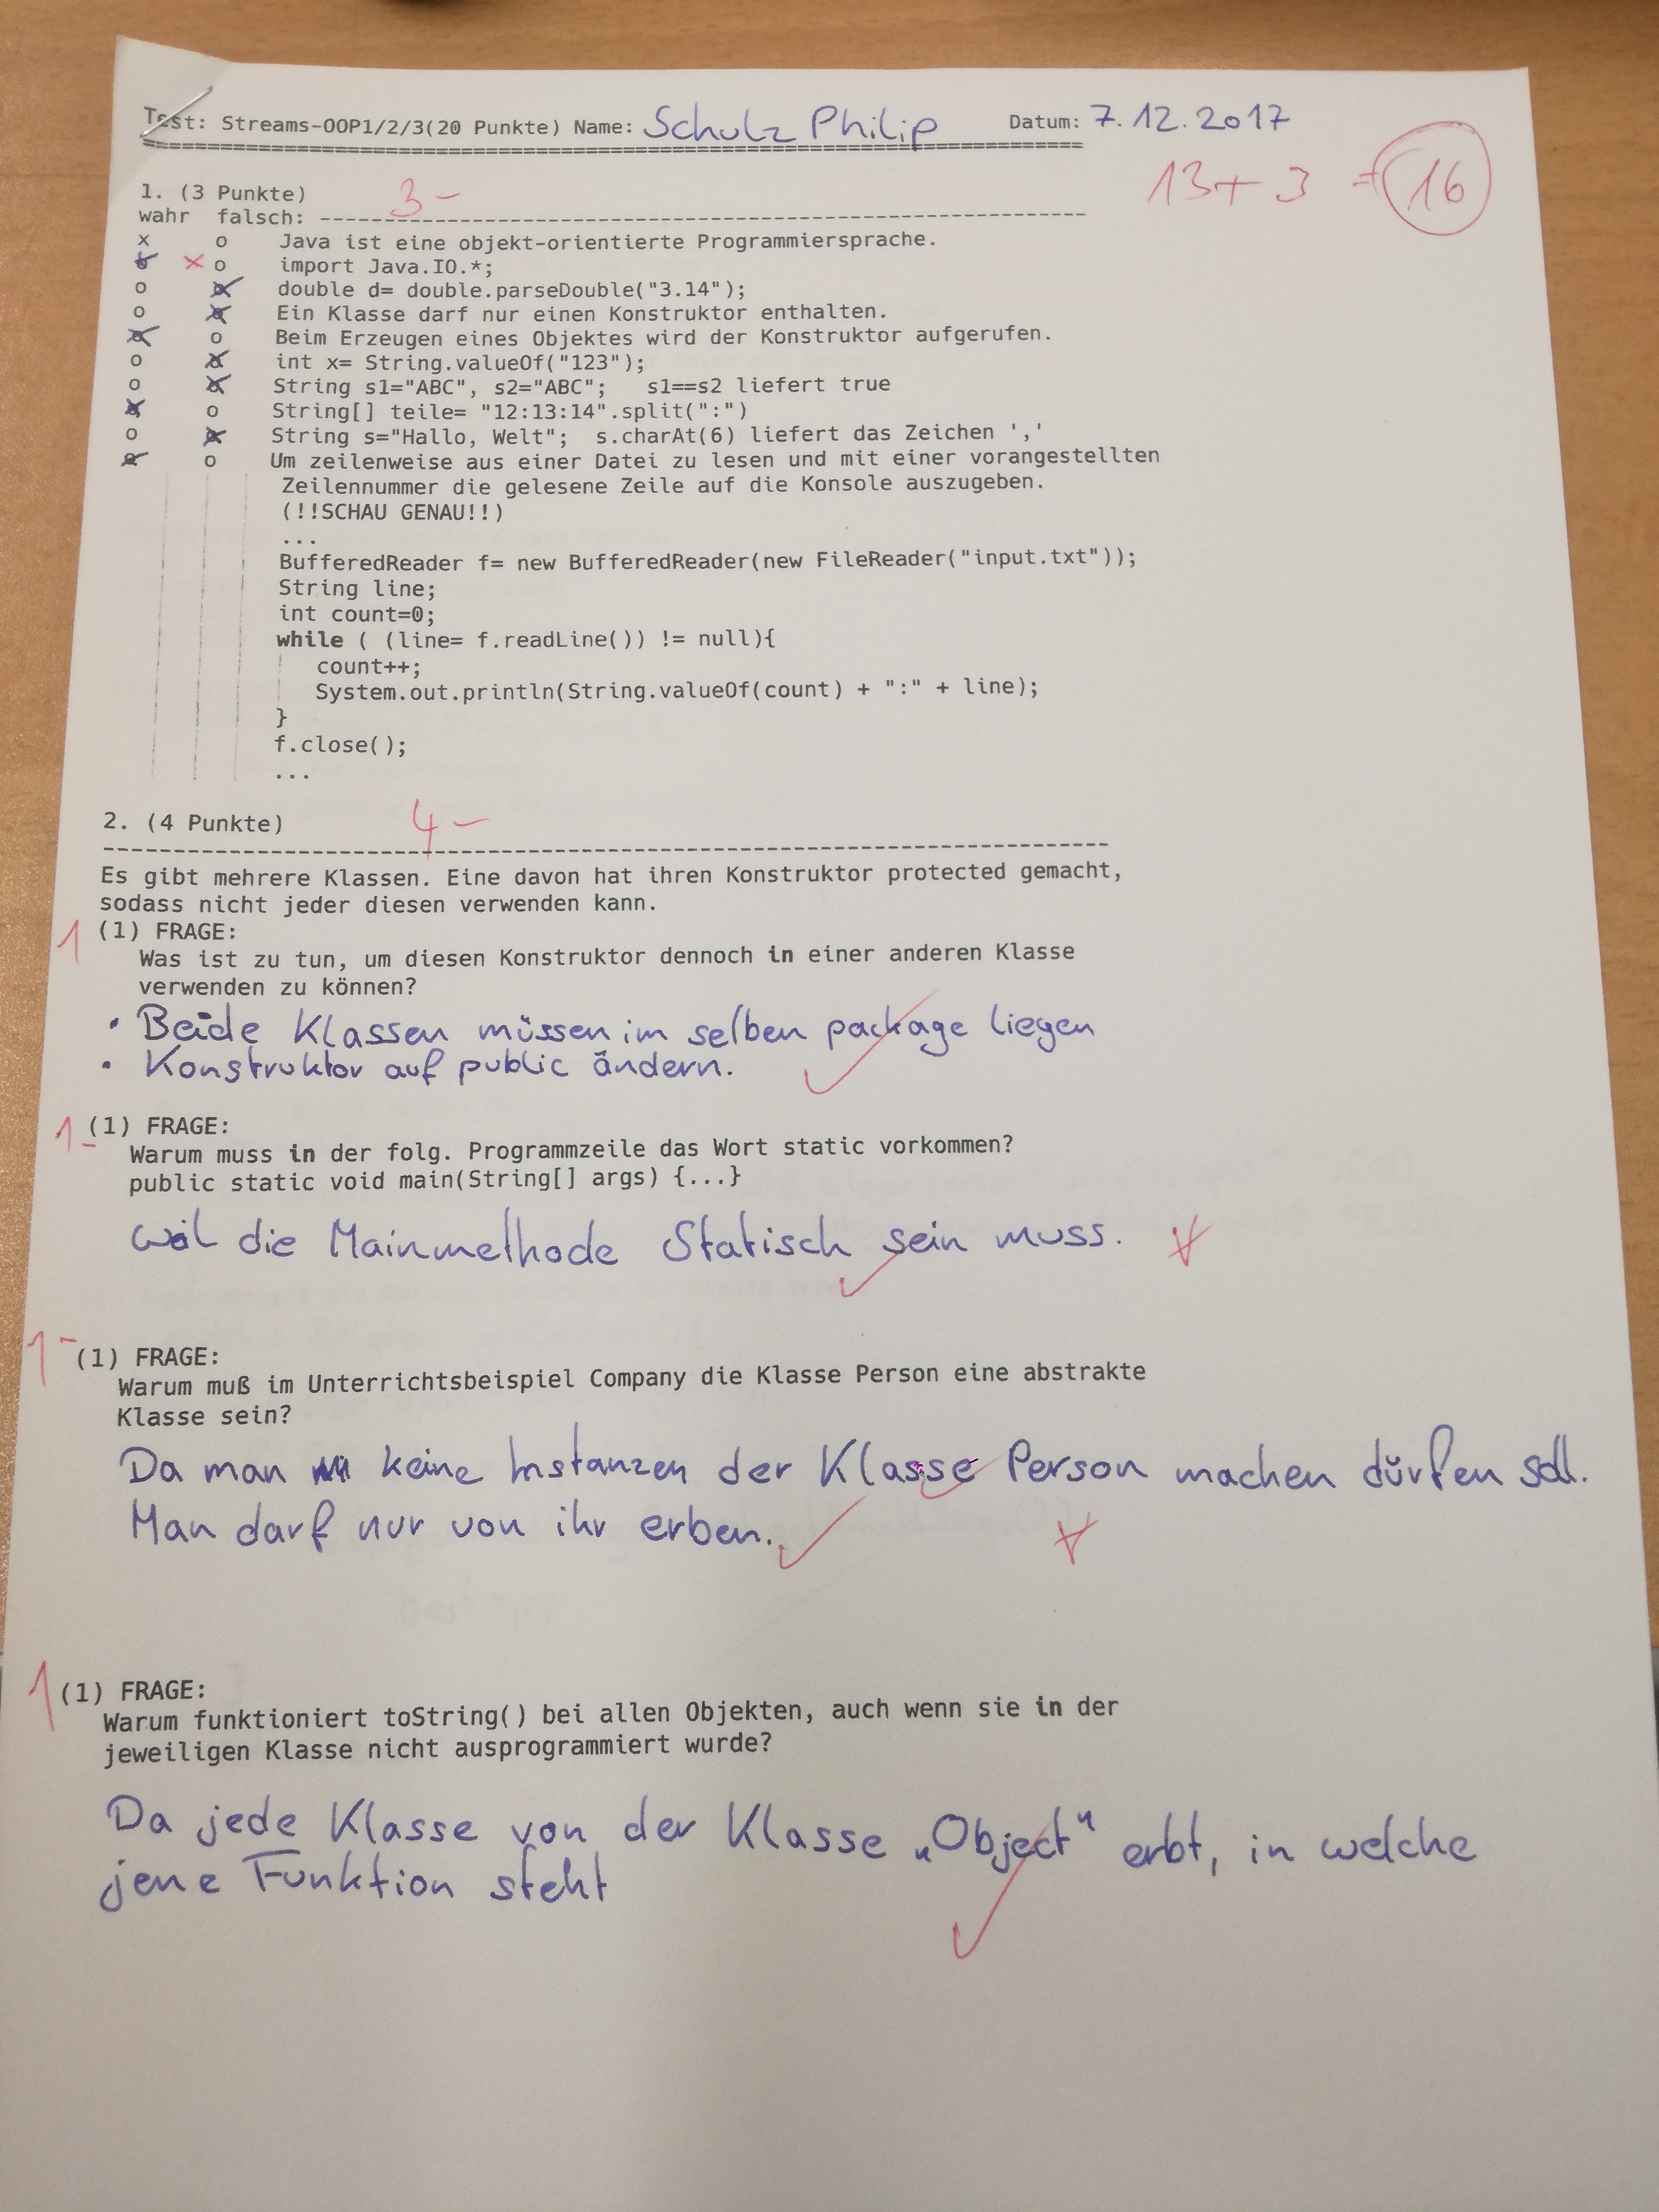 Test: Streams-OOP1/2/3(20 Punkte) Name: Schulz Philip Datum: 7.12.2017
13+3 = 16
1. (3 Punkte) 3-
wahr falsch: ------------------------------------------------------
x o Java ist eine objekt-orientierte Programmiersprache.
x o import Java.IO.*;
o x double d= double.parseDouble("3.14");
o x Ein Klasse darf nur einen Konstruktor enthalten.
x o Beim Erzeugen eines Objektes wird der Konstruktor aufgerufen.
o x int x= String.valueOf("123");
o x String s1="ABC", s2="ABC"; s1==s2 liefert true
x o String[] teile= "12:13:14".split(":")
o x String s="Hallo, Welt"; s.charAt(6) liefert das Zeichen ','
x o Um zeilenweise aus einer Datei zu lesen und mit einer vorangestellten
Zeilennummer die gelesene Zeile auf die Konsole auszugeben.
(!!SCHAU GENAU!!)
...
BufferedReader f= new BufferedReader(new FileReader("input.txt"));
String line;
int count=0;
while ( (line= f.readLine()) != null){
count++;
System.out.println(String.valueOf(count) + ":" + line);
}
f.close();
...
2. (4 Punkte) 4-
------------------------------------------------------------------------
Es gibt mehrere Klassen. Eine davon hat ihren Konstruktor protected gemacht,
sodass nicht jeder diesen verwenden kann.
1 (1) FRAGE:
Was ist zu tun, um diesen Konstruktor dennoch in einer anderen Klasse
verwenden zu können?
• Beide Klassen müssen im selben package liegen
• Konstruktor auf public ändern.
1- (1) FRAGE:
Warum muss in der folg. Programmzeile das Wort static vorkommen?
public static void main(String[] args) {...}
Weil die Mainmethode Statisch sein muss.
1- (1) FRAGE:
Warum muß im Unterrichtsbeispiel Company die Klasse Person eine abstrakte
Klasse sein?
Da man keine Instanzen der Klasse Person machen dürfen soll.
Man darf nur von ihr erben.
1 (1) FRAGE:
Warum funktioniert toString() bei allen Objekten, auch wenn sie in der
jeweiligen Klasse nicht ausprogrammiert wurde?
Da jede Klasse von der Klasse „Object" erbt, in welche
jene Funktion steht